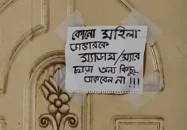 কোনো মহিলা
ডাক্তারকে
ম্যাডাম/ম্যাম
ছাড়া অন্য কিছু
ডাকবেন না !!!